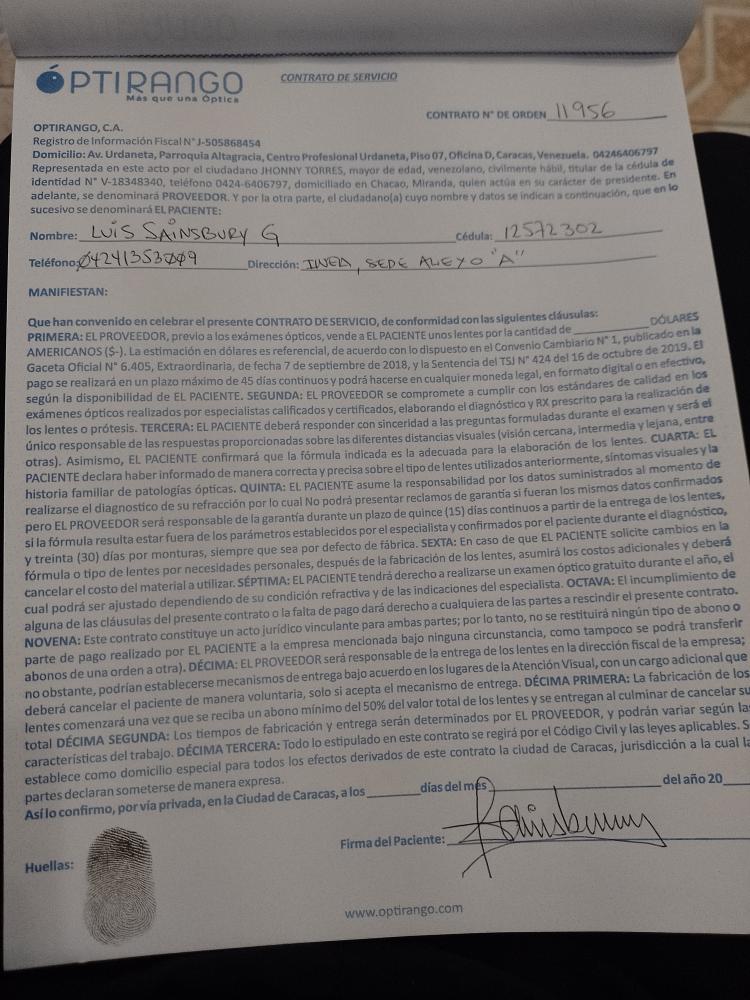 ÓPTIRANGO
Más que una Óptica
CONTRATO DE SERVICIO
CONTRATO N° DE ORDEN 11956
OPTIRANGO, C.A.
Registro de Información Fiscal N° J-505868454
Domicilio: Av. Urdaneta, Parroquia Altagracia, Centro Profesional Urdaneta, Piso 07, Oficina D, Caracas, Venezuela. 04246406797
Representada en este acto por el ciudadano JHONNY TORRES, mayor de edad, venezolano, civilmente hábil, titular de la cédula de
identidad N° V-18348340, teléfono 0424-6406797, domiciliado en Chacao, Miranda, quien actúa en su carácter de presidente. En
adelante, se denominará PROVEEDOR. Y por la otra parte, el ciudadano(a) cuyo nombre y datos se indican a continuación, que en lo
sucesivo se denominará EL PACIENTE:
Nombre: LUIS SAINSBURY G Cédula: 12572302
Teléfono: 04241353009 Dirección: INEA, SEDE "A"
MANIFIESTAN:
Que han convenido en celebrar el presente CONTRATO DE SERVICIO, de conformidad con las siguientes cláusulas:
PRIMERA: EL PROVEEDOR, previo a los exámenes ópticos, vende a EL PACIENTE unos lentes por la cantidad de ____________ DÓLARES
AMERICANOS ($-). La estimación en dólares es referencial, de acuerdo con lo dispuesto en el Convenio Cambiario N° 1, publicado en la
Gaceta Oficial N° 6.405, Extraordinaria, de fecha 7 de septiembre de 2018, y la Sentencia del TSJ N° 424 del 16 de octubre de 2019. El
pago se realizará en un plazo máximo de 45 días continuos y podrá hacerse en cualquier moneda legal, en formato digital o en efectivo,
según la disponibilidad de EL PACIENTE. SEGUNDA: EL PROVEEDOR se compromete a cumplir con los estándares de calidad en los
exámenes ópticos realizados por especialistas calificados y certificados, elaborando el diagnóstico y RX prescrito para la realización de
los lentes o prótesis. TERCERA: EL PACIENTE deberá responder con sinceridad a las preguntas formuladas durante el examen y será el
único responsable de las respuestas proporcionadas sobre las diferentes distancias visuales (visión cercana, intermedia y lejana, entre
otras). Asimismo, EL PACIENTE confirmará que la fórmula indicada es la adecuada para la elaboración de los lentes. CUARTA: EL
PACIENTE declara haber informado de manera correcta y precisa sobre el tipo de lentes utilizados anteriormente, síntomas visuales y la
historia familiar de patologías ópticas. QUINTA: EL PACIENTE asume la responsabilidad por los datos suministrados al momento de
realizarse el diagnostico de su refracción por lo cual No podrá presentar reclamos de garantía si fueran los mismos datos confirmados
pero EL PROVEEDOR será responsable de la garantía durante un plazo de quince (15) días continuos a partir de la entrega de los lentes,
si la fórmula resulta estar fuera de los parámetros establecidos por el especialista y confirmados por el paciente durante el diagnóstico,
y treinta (30) días por monturas, siempre que sea por defecto de fábrica. SEXTA: En caso de que EL PACIENTE solicite cambios en la
fórmula o tipo de lentes por necesidades personales, después de la fabricación de los lentes, asumirá los costos adicionales y deberá
cancelar el costo del material a utilizar. SÉPTIMA: EL PACIENTE tendrá derecho a realizarse un examen óptico gratuito durante el año, el
cual podrá ser ajustado dependiendo de su condición refractiva y de las indicaciones del especialista. OCTAVA: El incumplimiento de
alguna de las cláusulas del presente contrato o la falta de pago dará derecho a cualquiera de las partes a rescindir el presente contrato.
NOVENA: Este contrato constituye un acto jurídico vinculante para ambas partes; por lo tanto, no se restituirá ningún tipo de abono o
parte de pago realizado por EL PACIENTE a la empresa mencionada bajo ninguna circunstancia, como tampoco se podrá transferir
abonos de una orden a otra). DÉCIMA: EL PROVEEDOR será responsable de la entrega de los lentes en la dirección fiscal de la empresa;
no obstante, podrían establecerse mecanismos de entrega bajo acuerdo en los lugares de la Atención Visual, con un cargo adicional que
deberá cancelar el paciente de manera voluntaria, solo si acepta el mecanismo de entrega. DÉCIMA PRIMERA: La fabricación de los
lentes comenzará una vez que se reciba un abono mínimo del 50% del valor total de los lentes y se entregan al culminar de cancelar su
total DÉCIMA SEGUNDA: Los tiempos de fabricación y entrega serán determinados por EL PROVEEDOR, y podrán variar según las
características del trabajo. DÉCIMA TERCERA: Todo lo estipulado en este contrato se regirá por el Código Civil y las leyes aplicables. S
establece como domicilio especial para todos los efectos derivados de este contrato la ciudad de Caracas, jurisdicción a la cual la
partes declaran someterse de manera expresa.
Así lo confirmo, por vía privada, en la Ciudad de Caracas, a los ________ días del mes ____________ del año 20___
Firma del Paciente: Sainsbury
Huellas:
www.optirango.com